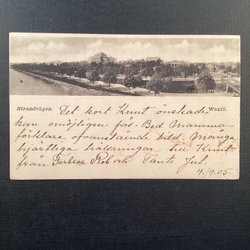 Strandvägen. Wexiö.
Det kort Knut önskade
kan omöjligen fås. Bed Mamma
förklara ofvanstående bild. Många
hjärtliga hälsningar till Knut
från Farbror och Tante Jul.
4/9 05